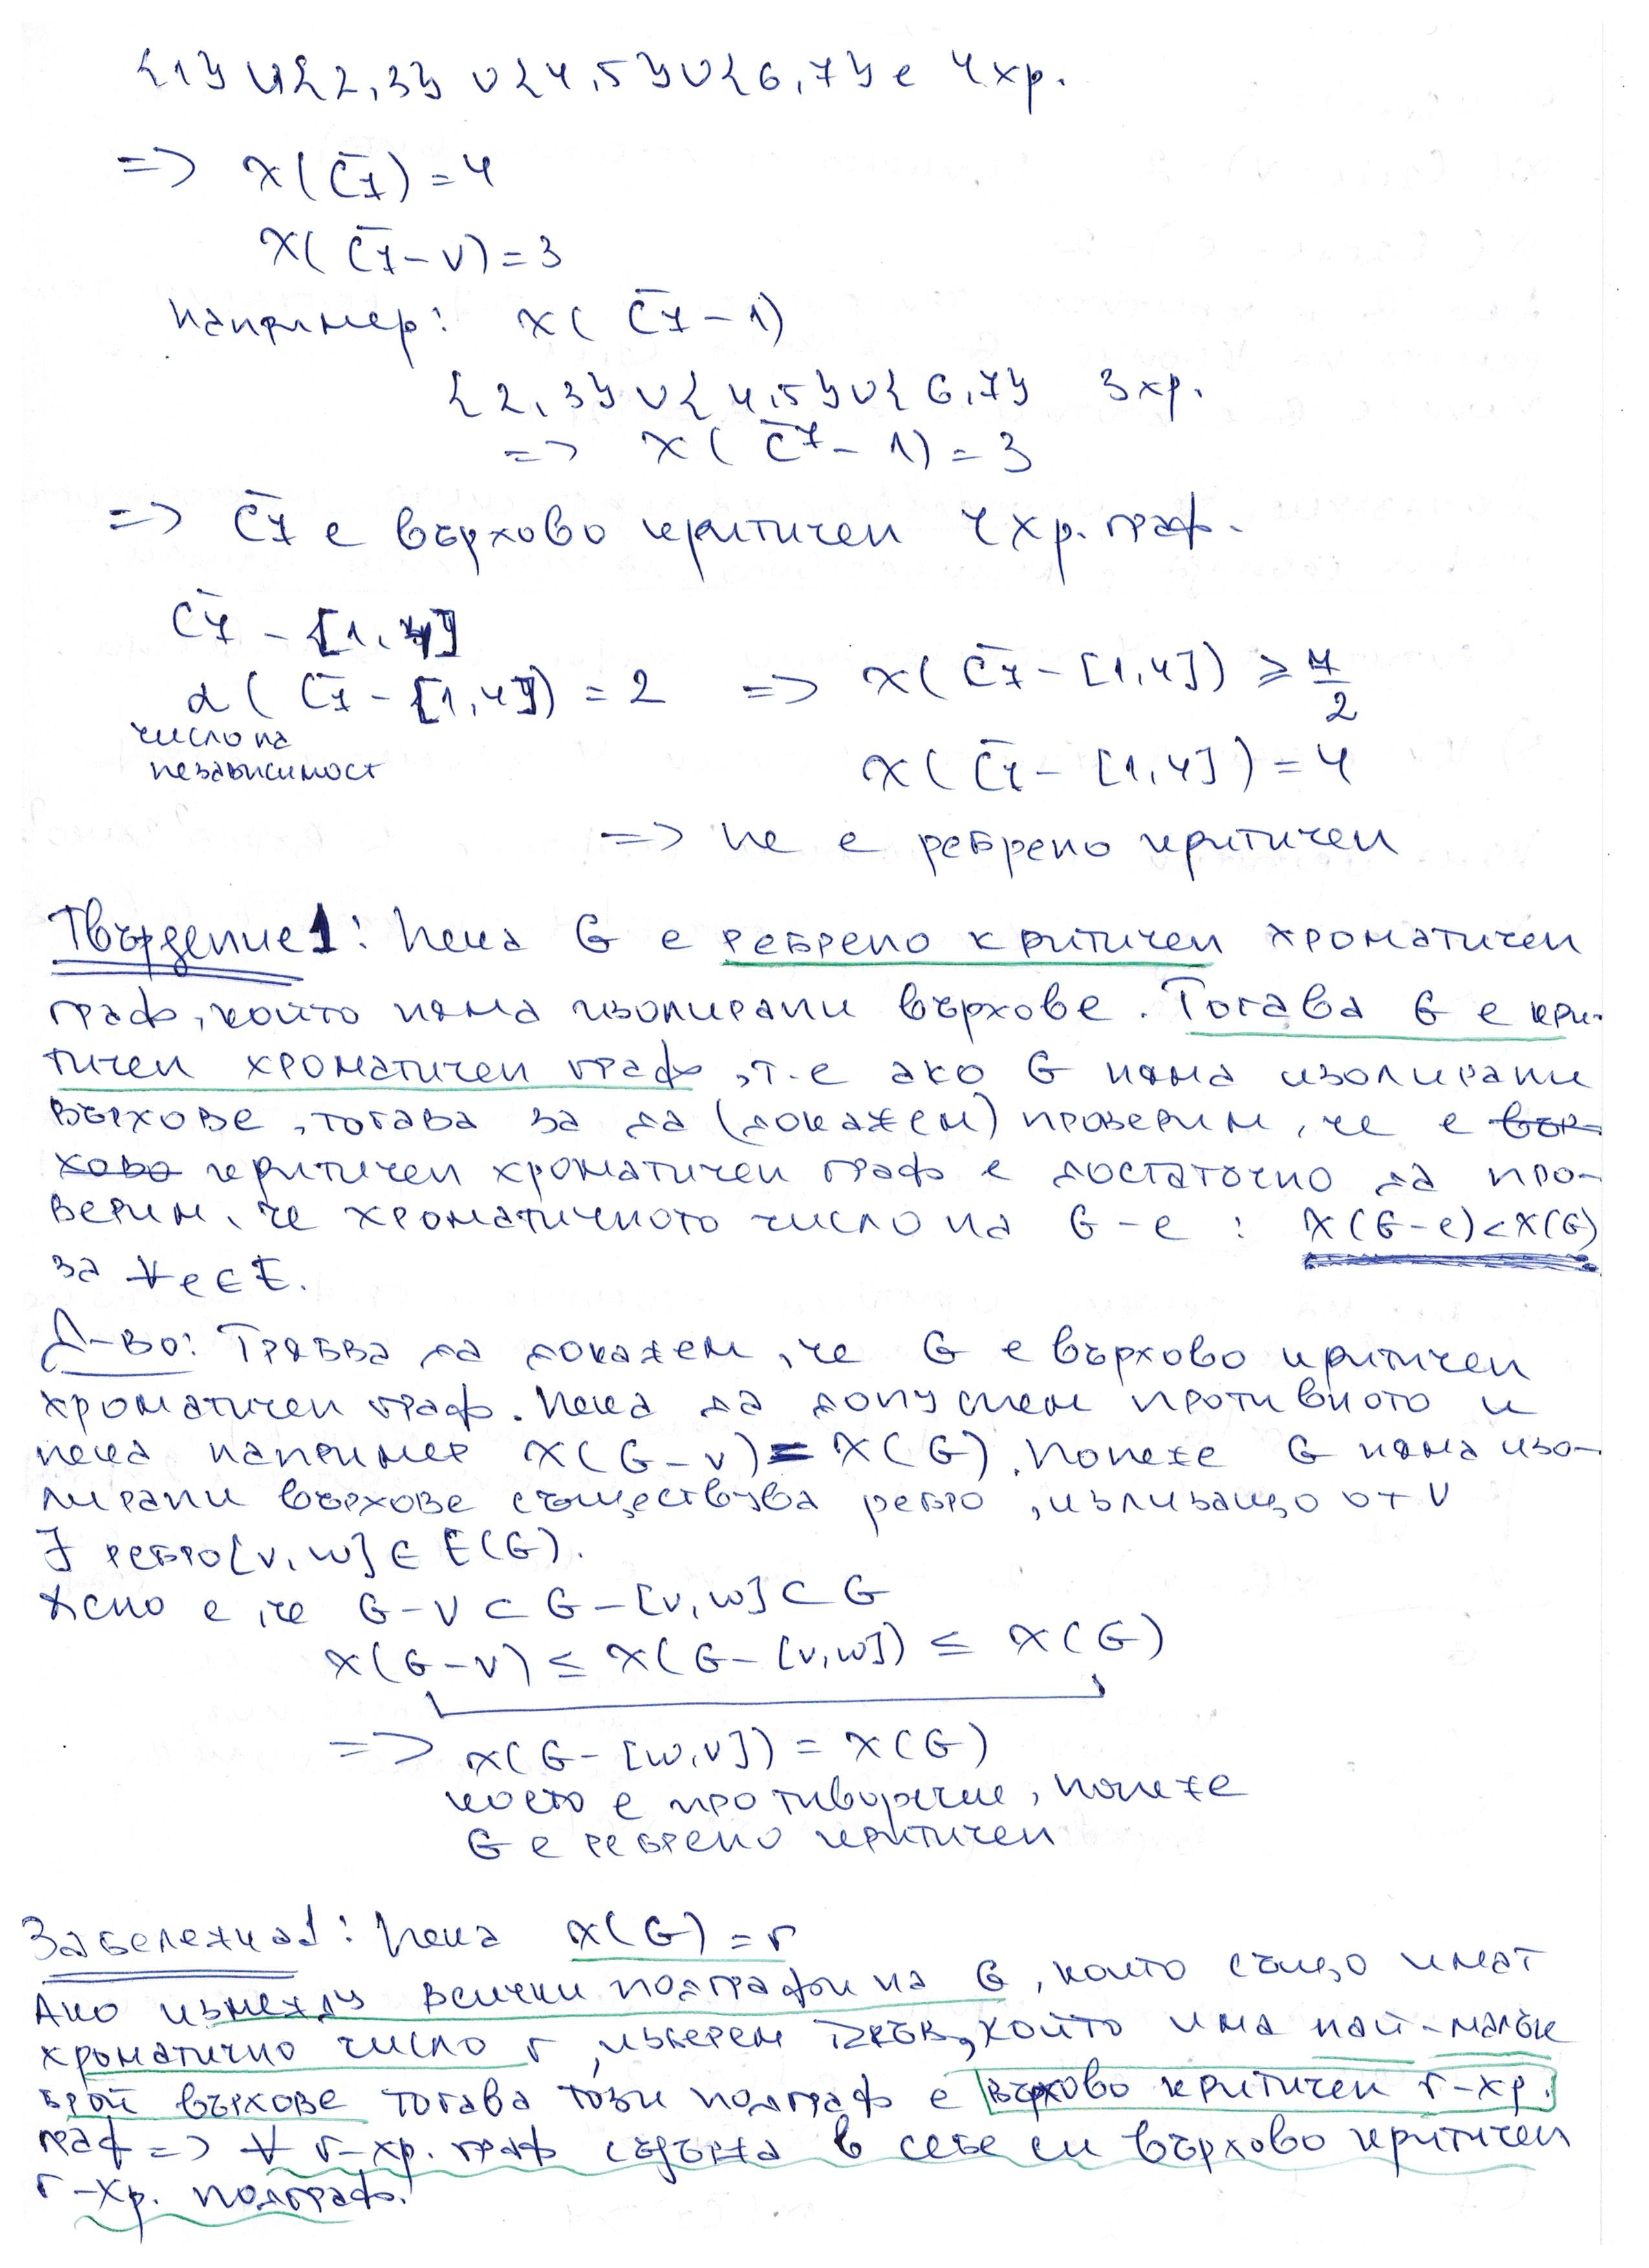 {1} ∪ {2,3} ∪ {4,5} ∪ {6,7} е 4хр.
=> χ(C̅7) = 4
χ(C̅7 - v) = 3
например: χ(C̅7 - 1)
{2,3} ∪ {4,5} ∪ {6,7} 3хр.
=> χ(C̅7 - 1) = 3
=> C̅7 е върхово критичен 4хр. граф.
C̅7 - [1,4]
α(C̅7 - [1,4]) = 2 => χ(C̅7 - [1,4]) ≥ 7/2
число на
независимост
χ(C̅7 - [1,4]) = 4
=> не е ребрено критичен
Твърдение1: Нека G е ребрено критичен хроматичен
граф, който няма изолирани върхове. Тогава G е кри-
тичен хроматичен граф, т.е ако G няма изолирани
върхове, тогава за да (докажем) проверим, че е вър-
хово критичен хроматичен граф е достатъчно да про-
верим, че хроматичното число на G-e : χ(G-e)<χ(G)
за ∀e∈E.
Д-во: Трябва да докажем, че G е върхово критичен
хроматичен граф. Нека да допуснем противното и
нека например χ(G-v) = χ(G). Понеже G няма изо-
лирани върхове съществува ребро, излизащо от v
∃ ребро[v,w] ∈ E(G).
Ясно е, че G-v ⊂ G-[v,w] ⊂ G
χ(G-v) ≤ χ(G-[v,w]) ≤ χ(G)
=> χ(G-[w,v]) = χ(G)
което е противоречие, понеже
G е ребрено критичен
Забележка1: Нека χ(G) = r
Ако измежду всички подграфи на G, които също имат
хроматично число r, изберем такъв, който има най-малък
брой върхове тогава този подграф е върхово критичен r-хр.
граф => ∀ r-хр. граф съдържа в себе си върхово критичен
r-хр. подграф.